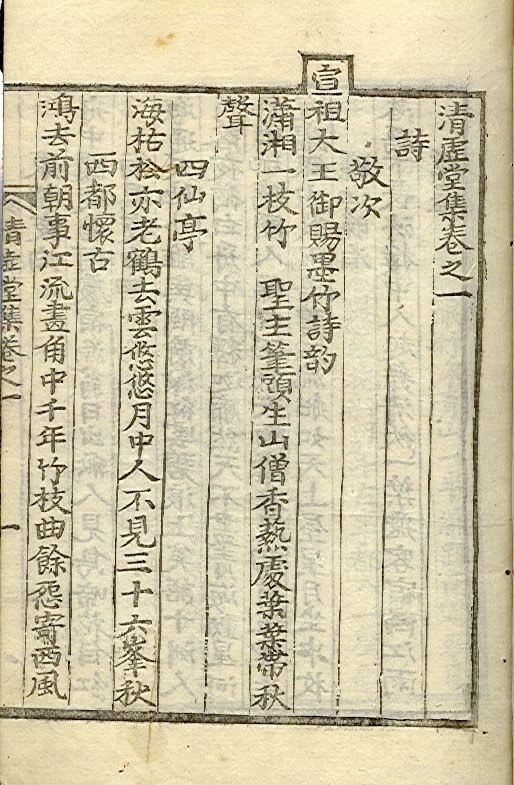 清虛堂集卷之一
詩
敬次
宣祖大王御賜墨竹詩韵
瀟湘一枝竹 聖主筆頭生山僧香爇處葉葉帶秋
聲
四仙亭
海枯松亦老鶴去雲悠悠月中人不見三十六峯秋
西都懷古
鴻去前朝事江流畫角中千年竹枝曲餘怨寄西風
清虛堂集卷之一
一